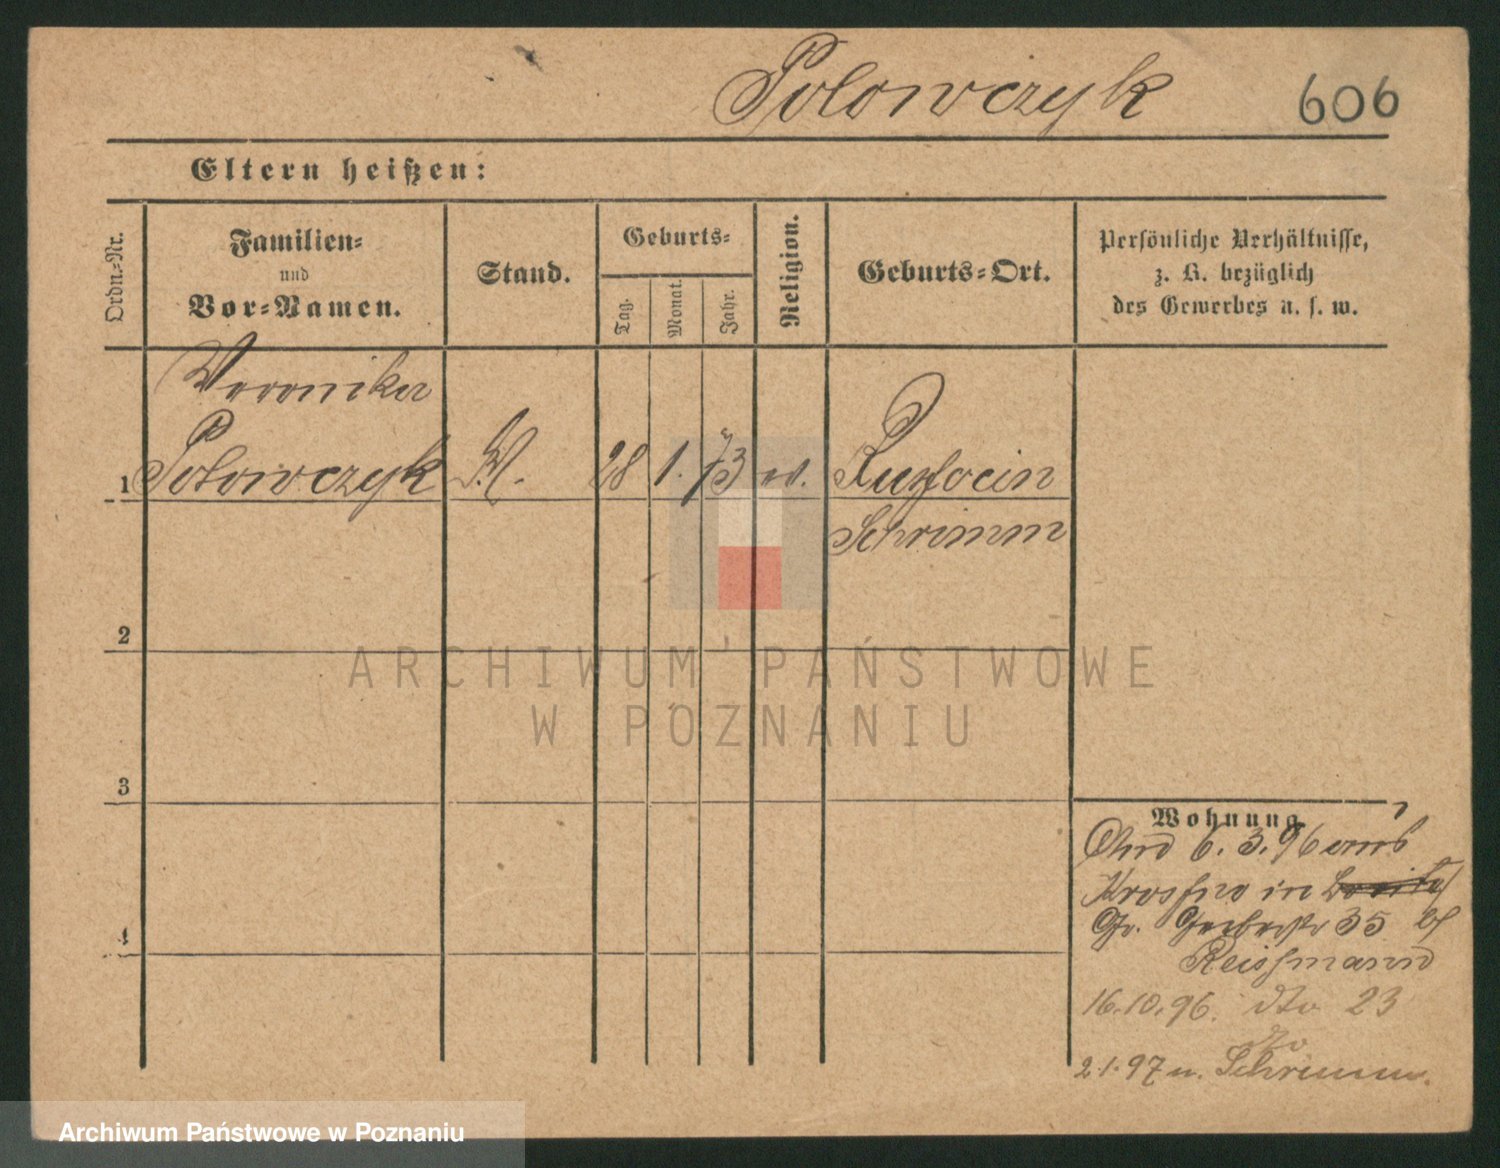 Polowczyk 606
Eltern heißen:
Ordn.-Nr.
Familien-
und
Vor-Namen.
Stand.
Geburts-
Tag.
Monat.
Jahr.
Religion.
Geburts-Ort.
Persönliche Verhältnisse,
z. B. bezüglich
des Gewerbes u. s. w.
Veronika
1 Polowczyk 28 1. 73
Schrimm
2
3
4
Wohnung
6. 3. 96 aus
Krossno in
Gr. Gerberstr 35 bei
Reissmann
16.10.96. dto 23
dto
2.1.97 n. Schrimm.
ARCHIWUM PAŃSTWOWE
W POZNANIU
Archiwum Państwowe w Poznaniu